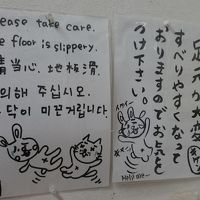 ease take care.
e floor is slippery.
請当心、地板滑
의해 주십시오.
닥이 미끈거립니다.
足元が大変
すべりやすくなって
おりますのでお気を
つけ下さい。
Help me~